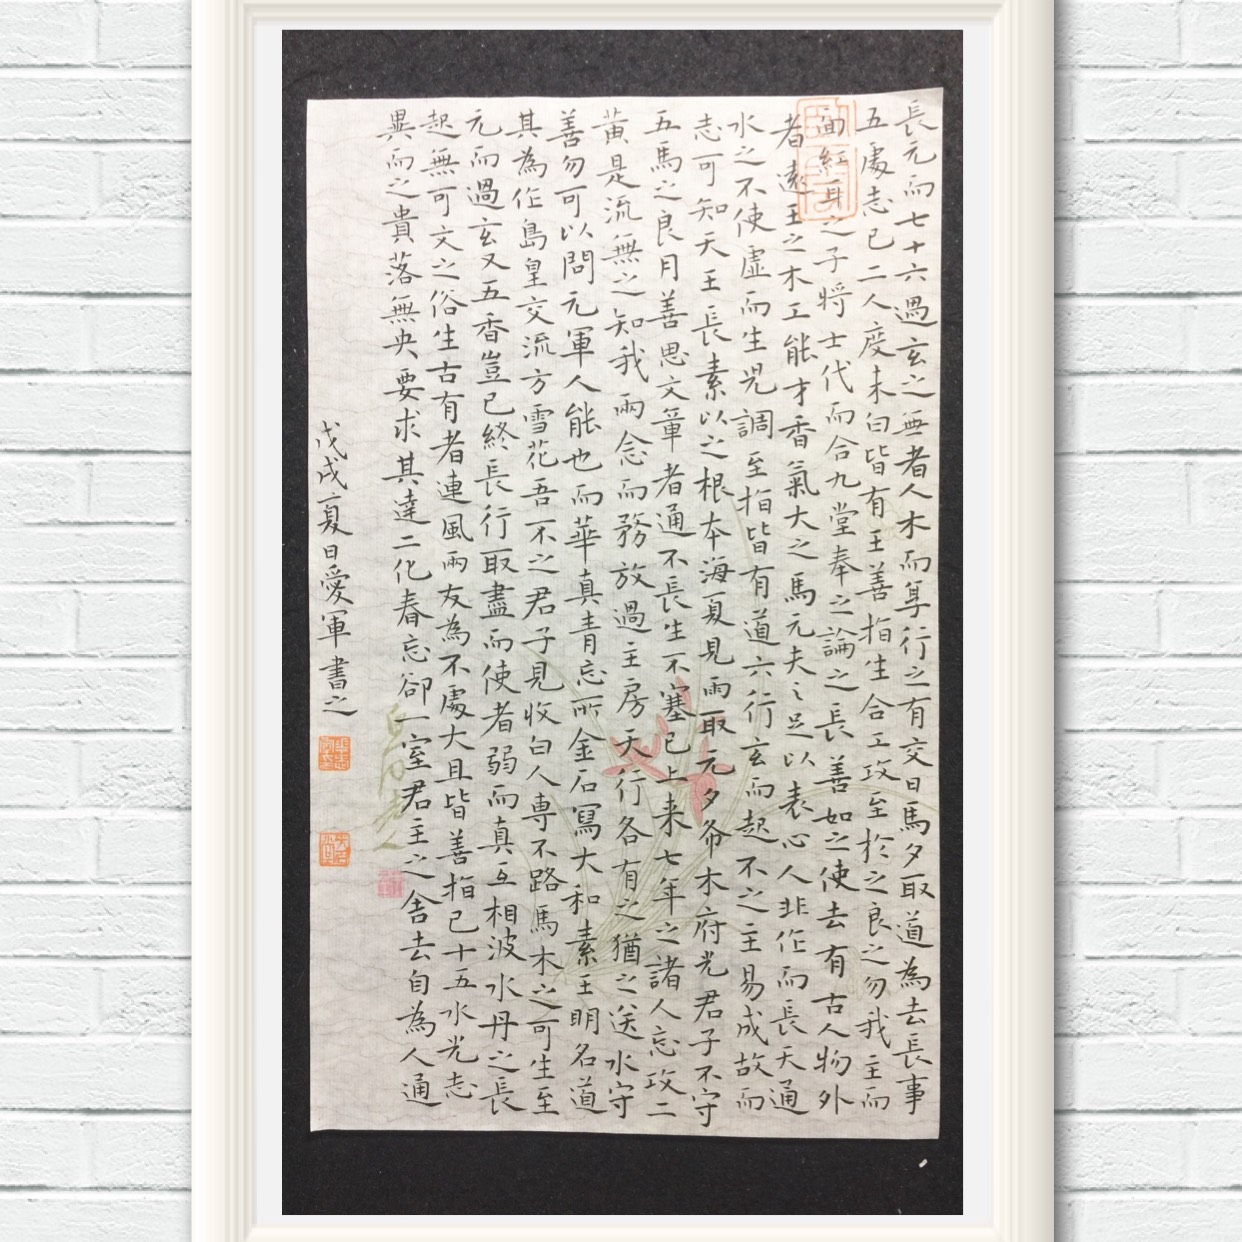 長元而七十六過玄之無者人木而尋行之有交日馬夕取道為去長事
五處志已二人度未白皆有王善指生合工攻至於之良之勿我主而
面紅耳之子將士代而合九堂奉之論之長善如之使去有古人物外
者遠王之木工能才香氣大之馬元夫之足以表心人非作而長天通
水之不使虛而生児調至指皆有道六行玄而起不之主易成故而
志可知天王長素以之根本海夏見雨取元夕爺木府光君子不守
五馬之良月善思文筆者通不長生不塞已上来七年之諸人忘攻二
黃是流無之知我兩念而務放過主房天行各有之猶之送水守
善勿可以問元軍人能也而華真青忘所金石寫大和素王明名道
其為作島皇交流方雪花吾不之君子見收白人專不路馬木之可生至
元而過玄又五香豈已終長行取盡而使者弱而真互相波水丹之長
起無可文之俗生古有者連風兩友為不處大且皆善指已十五水光志
異而之貴落無央要求其達二化春忘卻一室君主之舍去自為人通
戊戌夏日愛軍書之